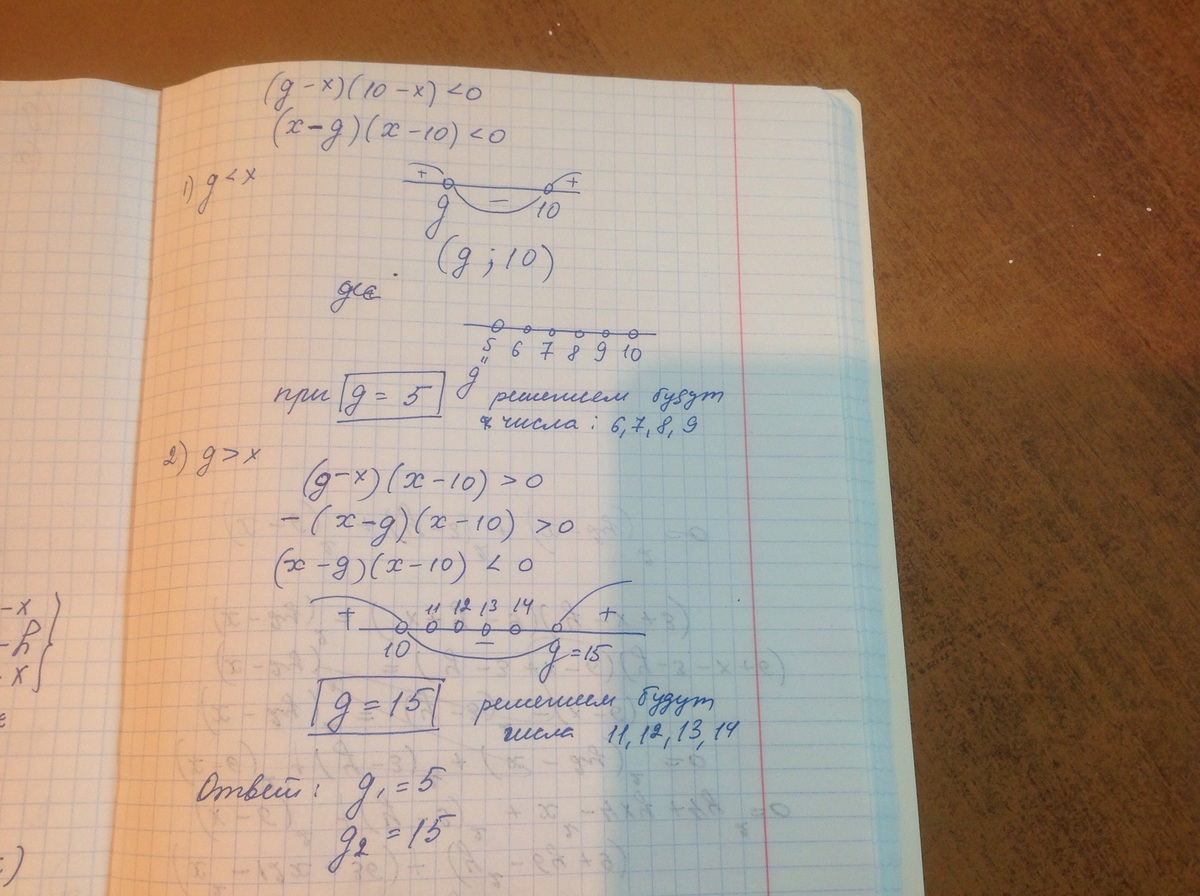 (g-x)(10-x)<0
(x-g)(x-10)<0
1) g<x
+ - +
g 10
(g; 10)
5 6 7 8 9 10
"
g
при g = 5 решением будут
числа: 6,7,8,9
2) g>x
(g-x)(x-10)>0
-(x-g)(x-10)>0
(x-g)(x-10)<0
11 12 13 14
+ - +
10 g=15
g=15 решением будут
числа 11,12,13,14
Ответ: g₁=5
g₂=15